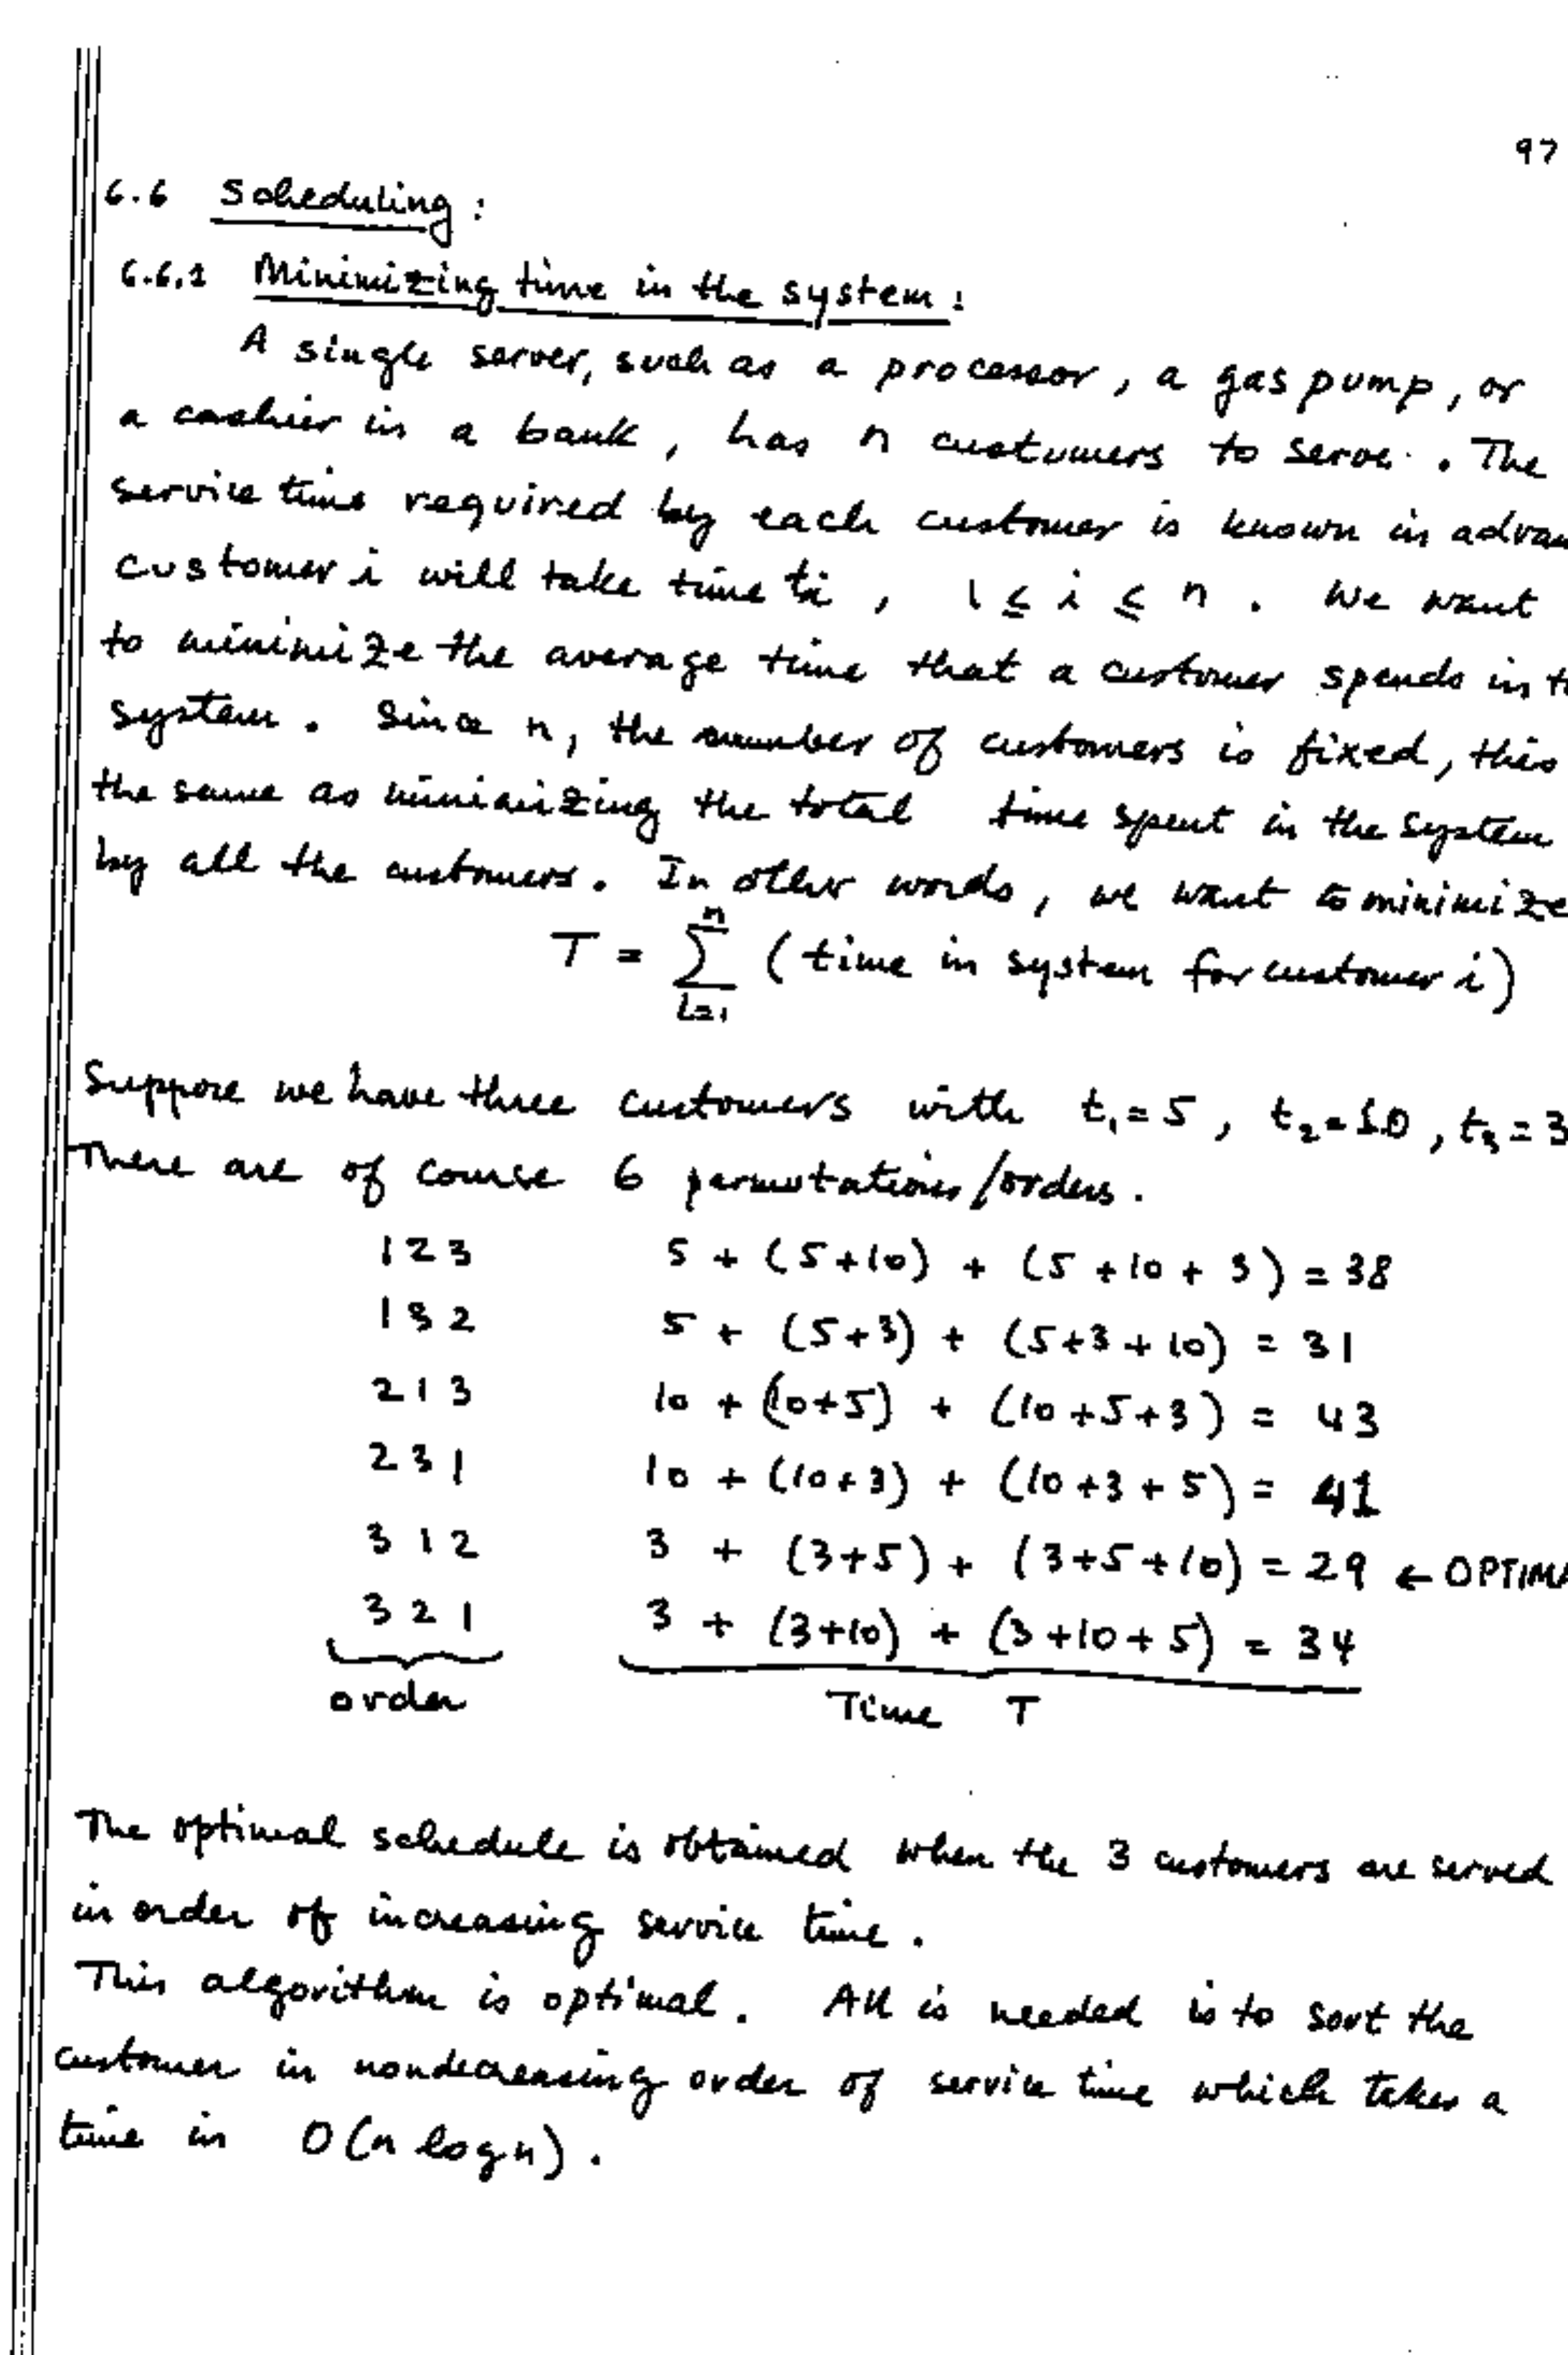 97
6.6 Scheduling :
6.6.1 Minimizing time in the system :
A single server, such as a processor, a gas pump, or
a cashier in a bank, has n customers to serve. The
service time required by each customer is known in advan
customer i will take time ti, 1 ≤ i ≤ n. We want
to minimize the average time that a customer spends in t
system. Since n, the number of customers is fixed, this
the same as minimizing the total time spent in the system
by all the customers. In other words, we want to minimize
T = ∑_{i=1}^{n} (time in system for customer i)
Suppose we have three customers with t₁ = 5, t₂ = 10, t₃ = 3
There are of course 6 permutations/orders.
1 2 3 5 + (5+10) + (5+10+3) = 38
1 3 2 5 + (5+3) + (5+3+10) = 31
2 1 3 10 + (10+5) + (10+5+3) = 43
2 3 1 10 + (10+3) + (10+3+5) = 41
3 1 2 3 + (3+5) + (3+5+10) = 29 ← OPTIMA
3 2 1 3 + (3+10) + (3+10+5) = 34
order Time T
The optimal schedule is obtained when the 3 customers are served
in order of increasing service time.
This algorithm is optimal. All is needed is to sort the
customer in nondecreasing order of service time which takes a
time in O(n log n).